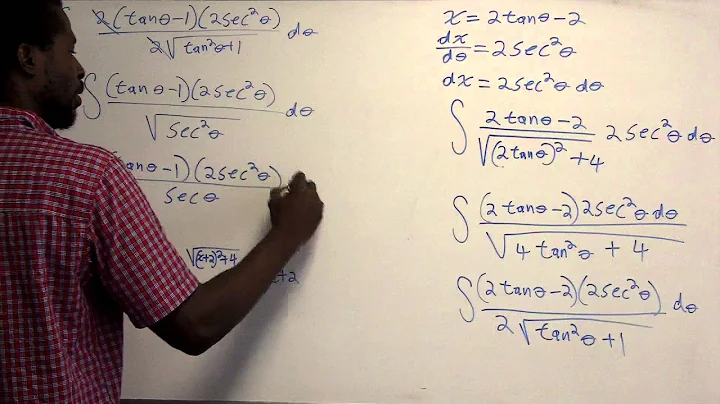 2(tanθ-1)(2sec²θ) / 2√(tan²θ+1) dθ
∫ (tanθ-1)(2sec²θ) / √(sec²θ) dθ
tanθ-1)(2sec²θ) / secθ
√((x+2)²+4)
+2
x=2tanθ-2
dx/dθ=2sec²θ
dx=2sec²θdθ
∫ 2tanθ-2 / √((2tanθ)²+4) 2sec²θdθ
∫ (2tanθ-2)2sec²θdθ / √(4tan²θ+4)
∫ (2tanθ-2)(2sec²θ) / 2√(tan²θ+1) dθ